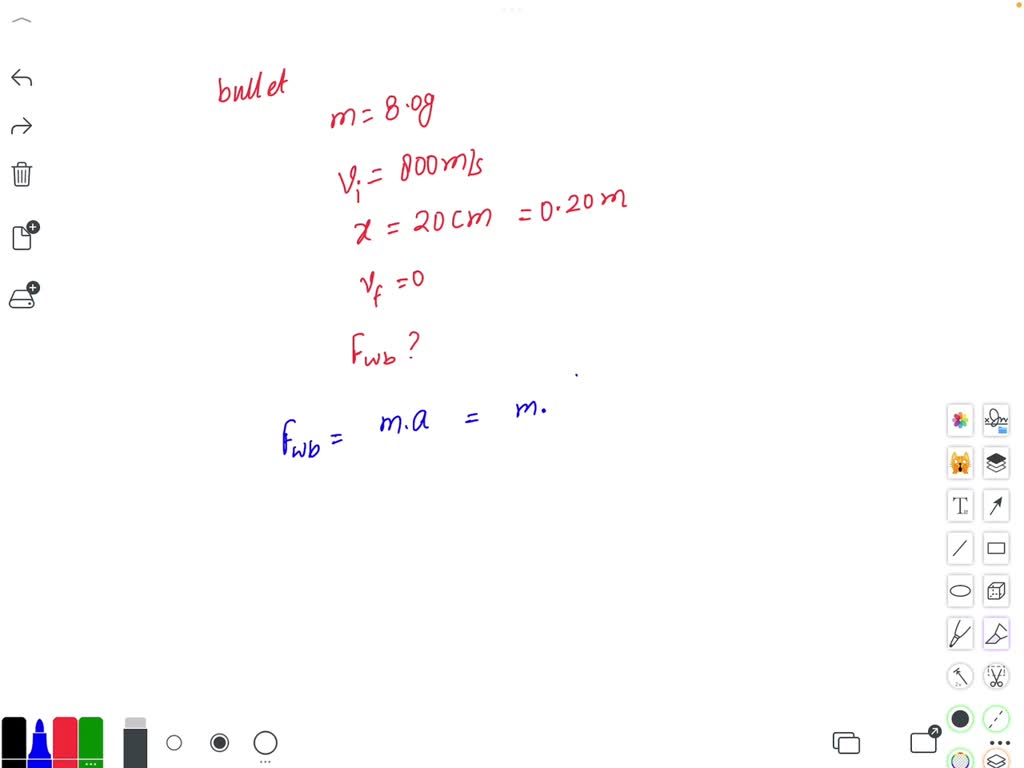 bullet
m = 8.0g
v_i = 800 m/s
x = 20 cm = 0.20 m
v_f = 0
F_wb ?
F_wb = m.a = m.